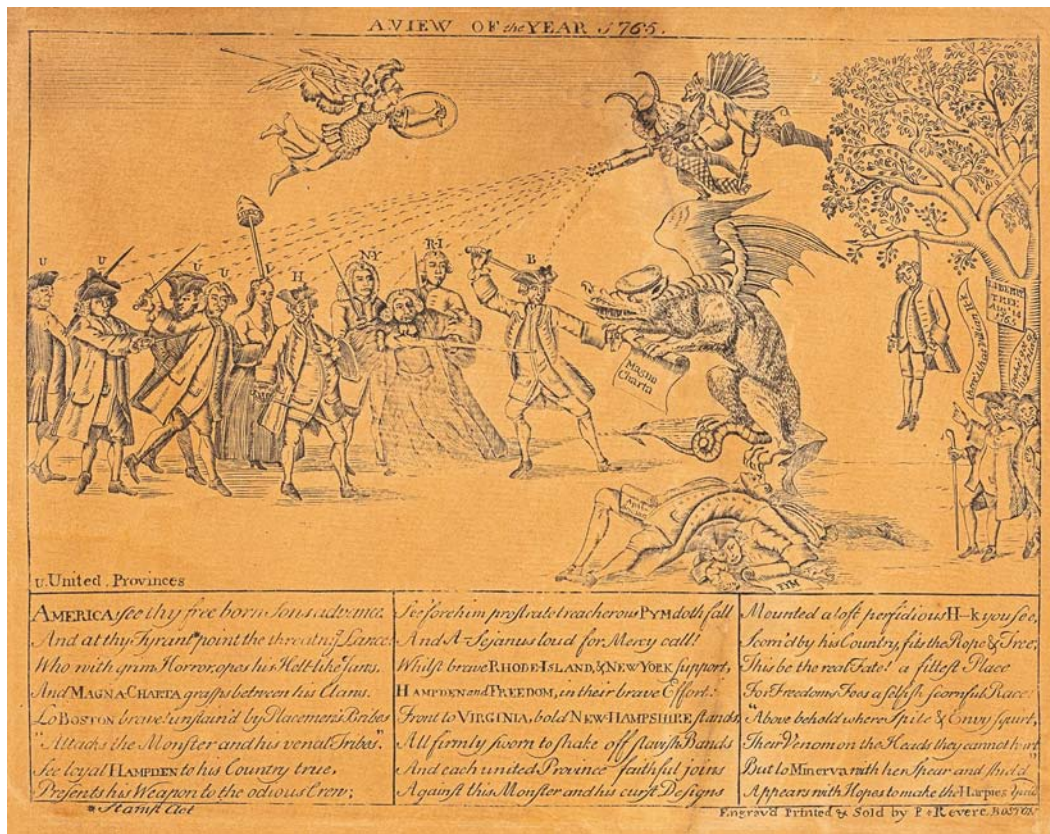 A VIEW OF the YEAR 1765.
U
U
U
U
U
H
N-Y
R-I
B
Magna Charta
LIBERTY TREE Aug. 14 1765
PYM
U. United Provinces
AMERICA see thy free born sons advance
And at thy Tyrant point the threat'ng Lance
Who with grim Horror opes his Hell-like Jaws,
And MAGNA-CHARTA grasps between his Claws.
Lo BOSTON brave! unstain'd by Placemen's Bribes
"Attacks the Monster and his venal Tribes."
See loyal HAMPDEN to his Country true,
Presents his Weapon to the odious Crew;
* Stampt Act
See'fore him prostrate treacherous PYM doth fall
And A-Sejanus loud for Mercy call!
Whilst brave RHODE-ISLAND, & NEW YORK support,
HAMPDEN and FREEDOM, in their brave Effort:
Front to VIRGINIA, bold NEW-HAMPSHIRE stands,
All firmly sworn to shake off slavish Bands
And each united Province faithful joins
Against this Monster and his curst Designs
Mounted aloft perfidious H--k you see,
Scorn'd by his Country, fits the Rope & Tree;
This be the real Fate! a fittest Place
For Freedoms Foes a selfish scornful Race!
"Above behold where Spite & Envy squirt,
Their Venom on the Heads they cannot hurt"
But lo Minerva with her Spear and shield
Appears with Hopes to make the Harpies
Engrav'd Printed & Sold by P. Revere BOSTON